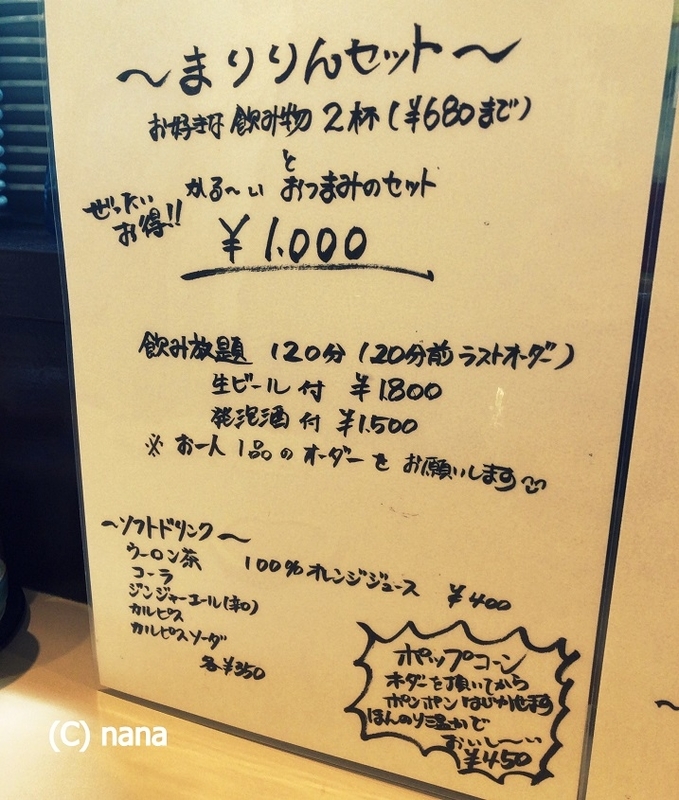 ～まりりんセット～
お好きな飲み物 2杯(¥680まで)
と
かる～い おつまみのセット
ぜったい
お得!!
¥1.000
飲み放題 120分(20分前ラストオーダー)
生ビール付 ¥1.800
発泡酒付 ¥1.500
※ お一人1品のオーダーをお願いします
～ソフトドリンク～
ウーロン茶
コーラ
ジンジャーエール(辛口)
カルピス
カルピスソーダ
各¥350
100%オレンジジュース ¥400
ポップコーン
オーダーを頂いてから
ポンポンはじかせます
ほんのり温かで
おいし～い
¥450
(C) nana